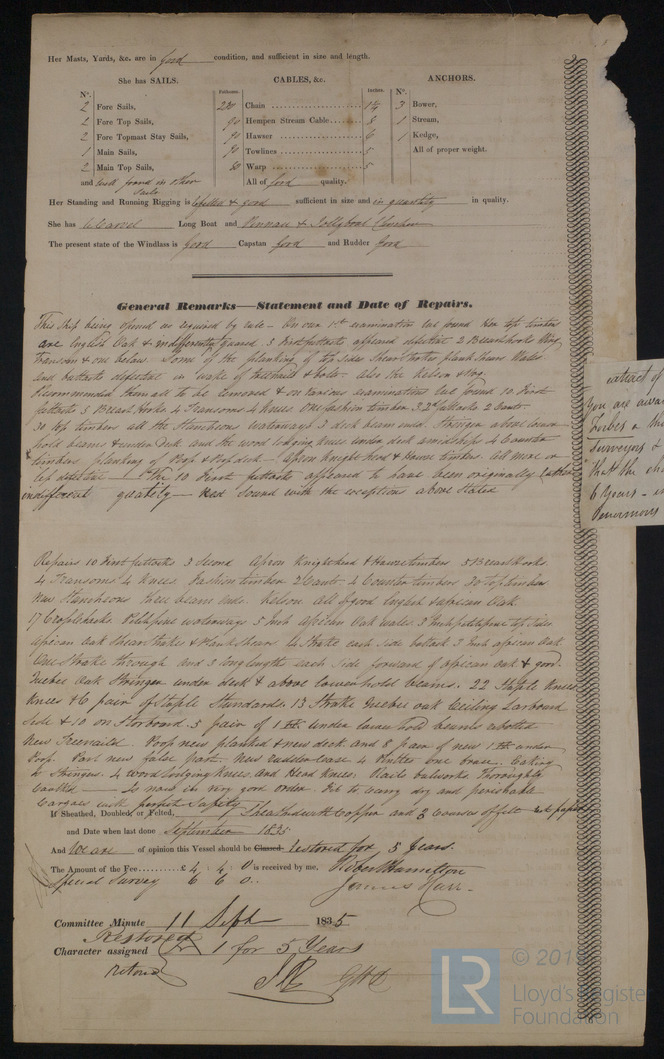 Her Masts, Yards, &c. are in good condition, and sufficient in size and length.
She has SAILS. CABLES, &c. ANCHORS.
Nº. Fathoms. Inches. Nº.
2 Fore Sails, Chain 3 Bower,
2 Fore Top Sails, 90 Hempen Stream Cable 8 1 Stream,
2 Fore Topmast Stay Sails, 90 Hawser 6 1 Kedge,
1 Main Sails, 90 Towlines 5 All of proper weight.
2 Main Top Sails, Warp 5
and well found in other sails All of good quality.
Her Standing and Running Rigging is good sufficient in size and in quantity in quality.
She has Long Boat and Pinnace & Jollyboat
The present state of the Windlass is good Capstan good and Rudder good
General Remarks—Statement and Date of Repairs.
This Ship being opened as required by rule - On our 1st examination we found Her top timbers
are English Oak & indifferently squared. 3 First futtocks appeared defective 2 Breasthooks Wing
Transom & one below. Some of the planking of top sides Shear Strakes plank Shears Wales
and buttocks defective in wake of treenails & bolts - also the Kelson &
Recommended them all to be removed & on various examinations we found 10 First
futtocks 5 Breasthooks 4 Transoms 4 Knees One fashion timber 3 2d futtocks 2 Cants
30 top timbers all the Stanchions waterways 3 deck beam ends. Stringer above lower
hold beams & under Deck and the wood lodging Knees under deck amidships 4 Counter
timbers planking of Poop & Poop deck - Apron Knight head & Hawse timbers. all more or
less defective - The 10 First futtocks appeared to have been originally
indifferent quality - sound with the exception above Stated
Repairs 10 First futtocks 3 Second Apron Knighthead & Hawse timbers 5 Breasthooks.
4 Transoms 4 Knees. Fashion timber 2 Cants 4 Counter timbers 30 Top timbers
New Stanchions three beam ends. Kelson all of good English & African Oak
waterways 5 Inch African Oak wales. 3 Inch top sides
African Oak Shear Strakes & Plank Shears Strake each side buttock 3 Inch African Oak
One Strake through and 3 long length each Side forward of African Oak & good.
Quebec Oak Stringer under deck & above lower hold beams. 22 Staple Knees
Knees & 6 pair of Staple Standards. 13 Strake Quebec oak Ceiling Larboard
Side & 10 on Starboard. 5 pair of 1 under lower hold beams rebolted
New Treenails. Poop new planked & new deck and 8 pair of new under
Poop. Part new false part. New rudder case 4 one brace.
& Stringers. 4 wood lodging Knees and Head Knees. Rails bulwarks. Thoroughly
Caulked - Is now in very good order. Fit to carry dry and perishable
Cargoes with perfect Safety
If Sheathed, Doubled, or Felted, Sheathed with Copper and 3 Courses of felt
and Date when last done September 1835
And We are of opinion this Vessel should be Classed, restored for 5 Years.
The Amount of the Fee £ 4 : 4 : 0 is received by me, Robert Hamilton
Special Survey 6 6 0 James
Committee Minute 11 Sept 1835
Restored
Character assigned 1 for 5 Years
extract of
You are awa
Forbes
Surveyors &
that the
6 Years -
© 201
LR
Lloyd's Register
Foundation